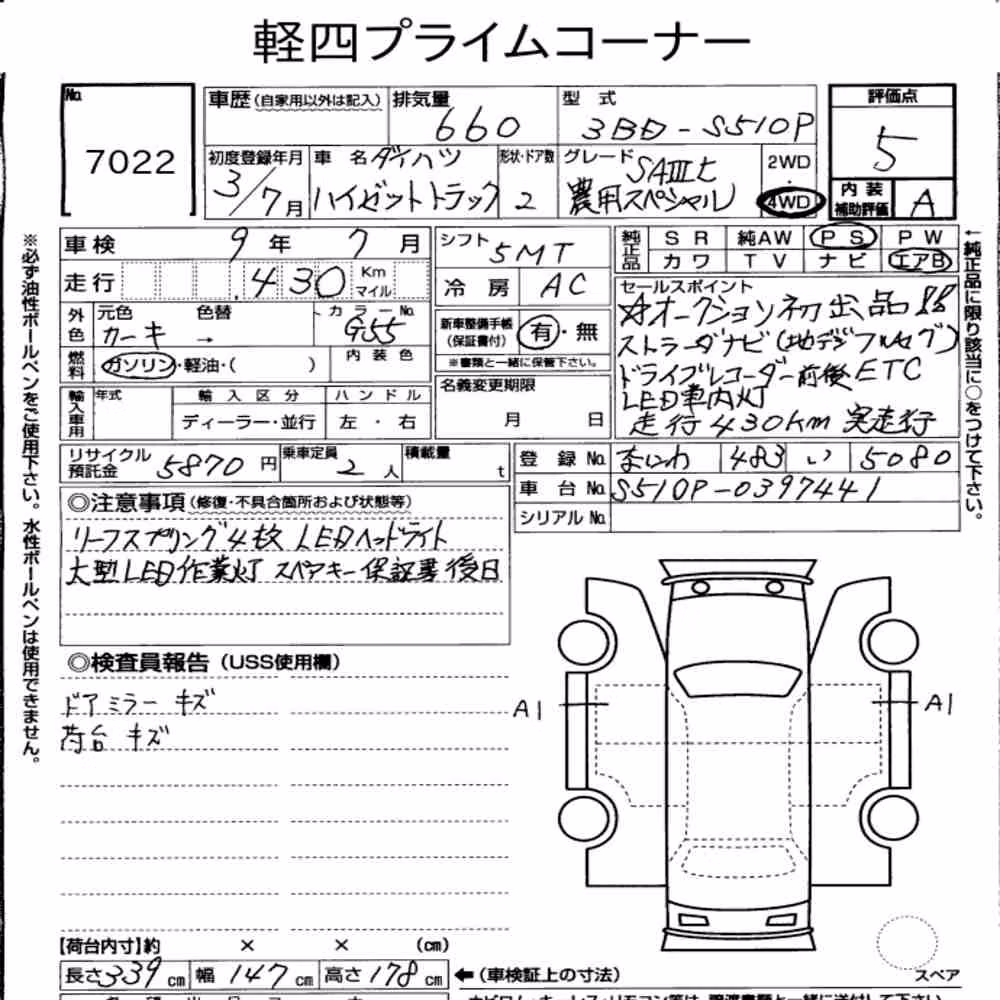 軽四プライムコーナー
No. 7022
車歴(自家用以外は記入) 排気量 660 型式 3BD-S510P
評価点 5
初度登録年月 3/7月 車名 ダイハツ ハイゼットトラック 形状・ドア数 2 グレード SAⅢt 農用スペシャル 2WD・4WD
内装補助評価 A
車検 9年 7月
シフト 5MT
純正品 SR 純AW PS PW
カワ TV ナビ エアB
走行 430 Km マイル
冷房 AC
外色 元色 カーキ 色替 → カラーNo. G55
新車整備手帳(保証書付) 有・無
※書類と一緒に保管下さい。
燃料 ガソリン・軽油・( ) 内装色
名義変更期限 月 日
輸入車用 年式 輸入区分 ディーラー・並行 ハンドル 左・右
セールスポイント
☆オークション初出品
ストラーダナビ(地デジフルセグ)
ドライブレコーダー前後 ETC
LED車内灯
走行430km 実走行
リサイクル預託金 5870円 乗車定員 2人 積載量 t
登録No. なにわ 483 い 5080
車台No. S510P-0397441
シリアルNo.
◎注意事項(修復・不具合箇所および状態等)
リーフスプリング4枚 LEDヘッドライト
大型LED作業灯 スペアキー 保証書後日
◎検査員報告(USS使用欄)
ドアミラー キズ
荷台 キズ
A1
A1
【荷台内寸】約 × × (cm)
長さ339cm 幅147cm 高さ178cm
←(車検証上の寸法)
スペア
※必ず油性ボールペンをご使用下さい。水性ボールペンは使用できません。
←純正品に限り該当に○をつけて下さい。